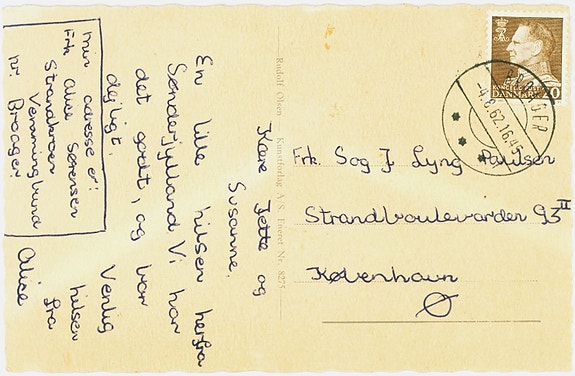 Kære Jette og
Susanne.
En lille hilsen herfra
Sønderjylland Vi har
det godt, og
dejligt.
Venlig
hilsen
fra
Alice
min adresse er:
Frk Alice Sørensen
Strandkroen
Vemmingbund
nr. Broager.
Rudolf Olsen Kunstforlag A/S. Eneret Nr. 8275
DANMARK
BROAGER
-4.8.62.16.45
Frk. S og J Lyng Paulsen
Strandboulevarden 93 II
København
Ø